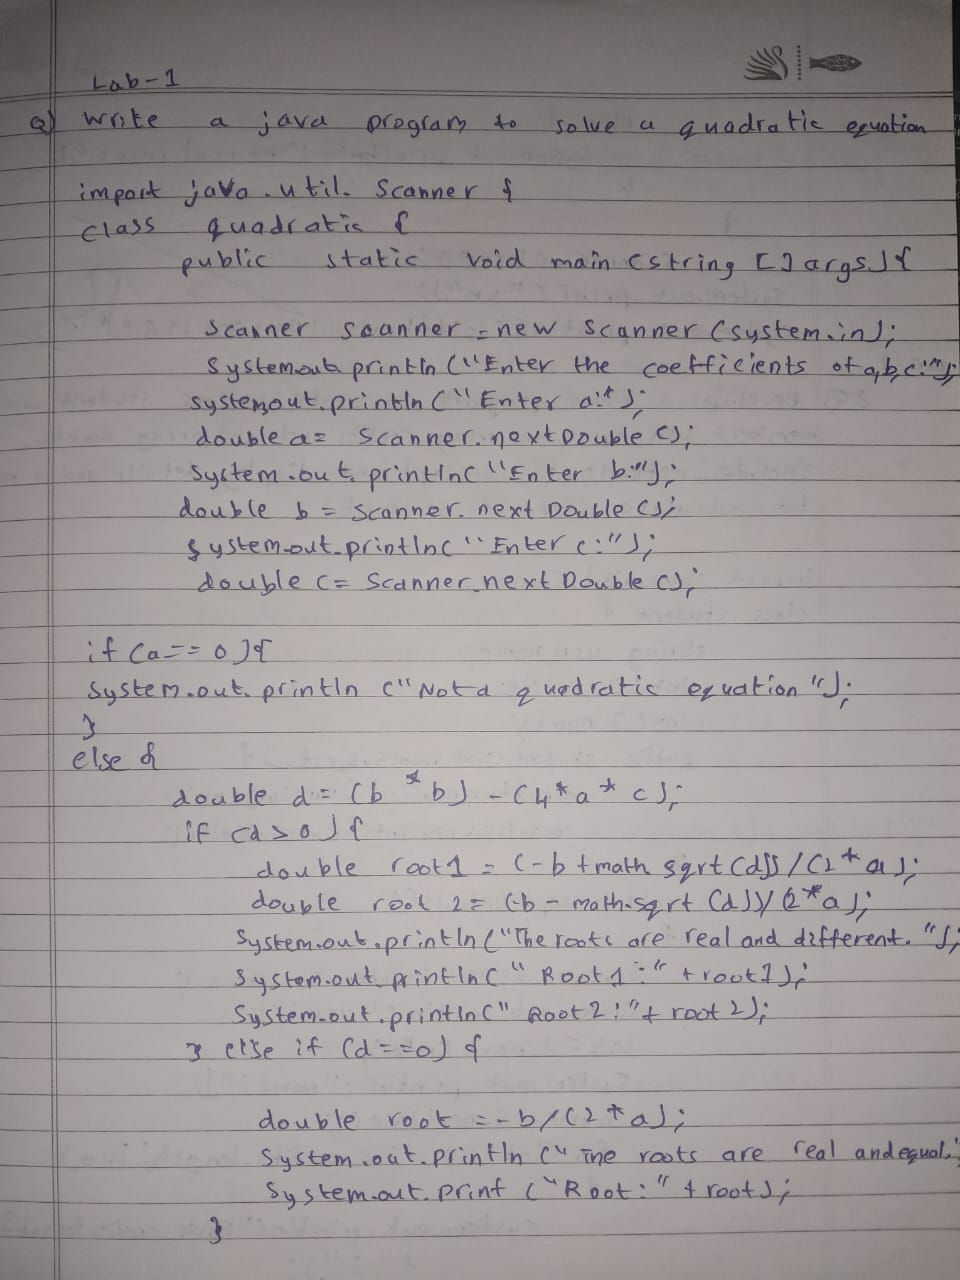 Lab-1
Q) Write a java program to solve a quadratic equation
import java.util. Scanner {
class quadratic {
public static void main (string [] args) {
Scanner scanner = new Scanner (system.in);
System.out. println ("Enter the coefficients of a,b,c:");
system.out.println ("Enter a:");
double a = Scanner. nextDouble ();
System.out. println ("Enter b:");
double b = Scanner. next Double ();
System.out.println ("Enter c:");
double c = Scanner.next Double ();
if (a == 0) {
System.out. println ("Not a quadratic equation");
}
else {
double d = (b * b) - (4 * a * c);
if (d > 0) {
double root1 = (-b + math sqrt (d)) / (2 * a);
double root 2 = (-b - math.sqrt (d)) / (2*a);
System.out.println ("The roots are real and different.");
System.out.println (" Root1 :" + root1);
System.out.println (" Root2 :" + root 2);
} else if (d==0) {
double root = -b / (2 * a);
System.out.println (" The roots are real and equal.
System.out. print ("Root:" + root);
}